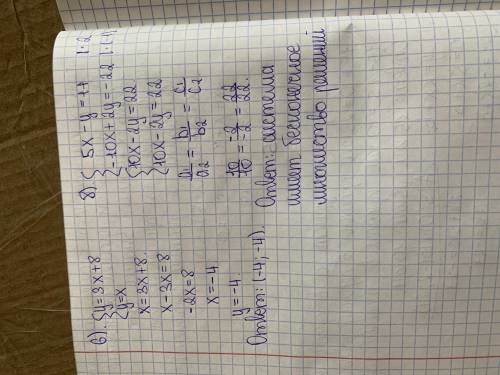 6). { y=3x+8
{ y=x
x=3x+8
x-3x=8
-2x=8
x=-4
y=-4.
Ответ: (-4; -4).
8) { 5x-y=11 |·2
{ -10x+2y=-22 |·(-1)
{ 10x-2y=22
{ 10x-2y=22
a₁/a₂ = b₁/b₂ = c₁/c₂
10/10 = -2/-2 = 22/22.
Ответ: система
имеет бесконечное
множество решений